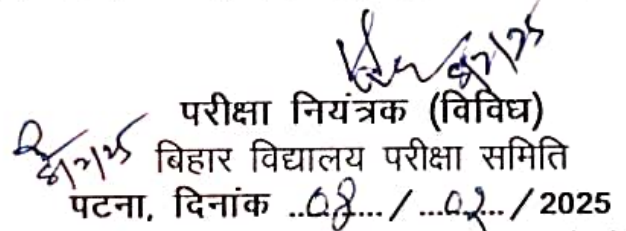 8/2/25
परीक्षा नियंत्रक (विविध)
8/2/25 बिहार विद्यालय परीक्षा समिति
पटना, दिनांक ..08.... / ...02... / 2025